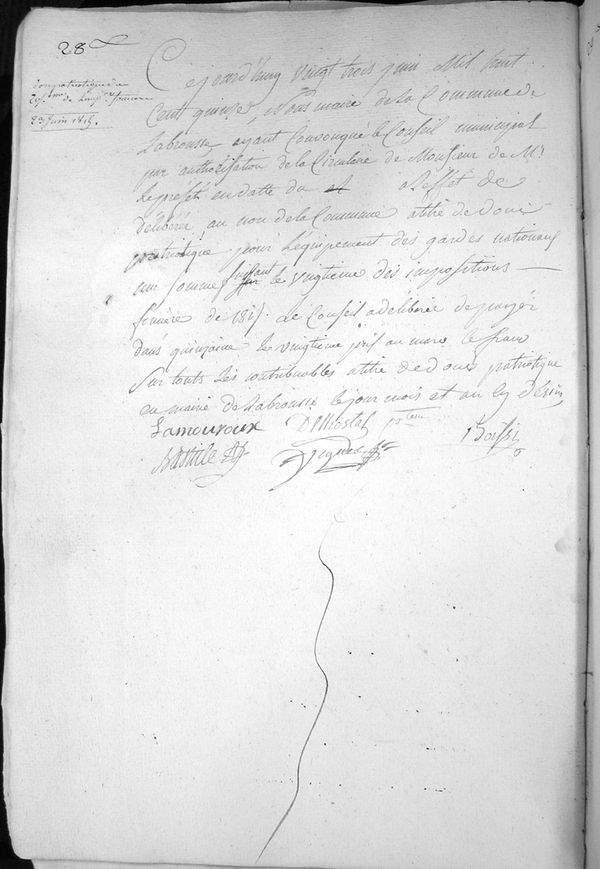 28
don patriotique du
20.eme de l'imp.on fonciere
23 juin 1815.
Cejourd'huy vingt trois juin Mil huit
Cent quinze, Nous maire de la Commune de
Labrousse ayant Convonqué le Conseil municipal
par authorisation de la Circulaire de Monsieur de Mr
le prefét en datte du a leffét de
délibérér au non de la Commune atitre de don
patriotique pour Léquipement des gardes nationaux
une somme fesant le vingtieme des impositions
fonière de 1815. Le Conseil a delibérée de
dans quinzaine le vingtieme au marc le franc
Sur touts Les contribuables atitre de don patriotique
en mairie de Labrousse le jour mois et an
Lamouroux Delrostal
Bastide Vigner Boissi